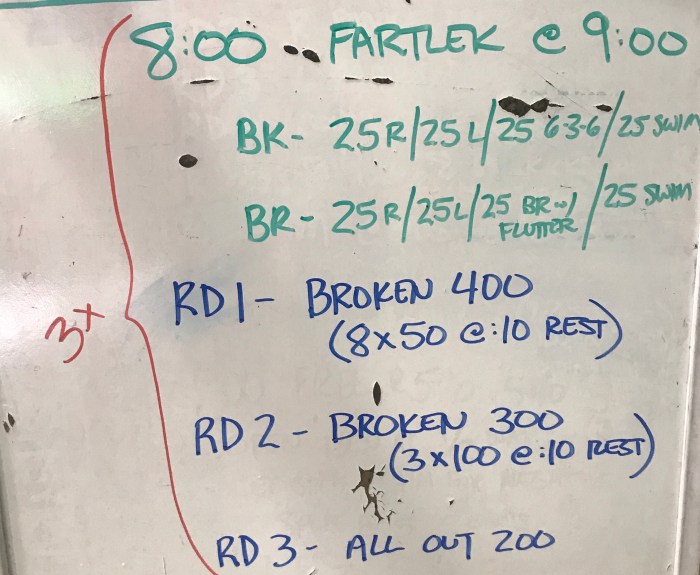 8:00 FARTLEK @ 9:00
BK- 25R/25L/25 6-3-6/25 SWIM
BR- 25R/25L/25 BR w/ FLUTTER/25 SWIM
3x
RD1- BROKEN 400
(8x50 @:10 REST)
RD2- BROKEN 300
(3x100 @:10 REST)
RD3- ALL OUT 200